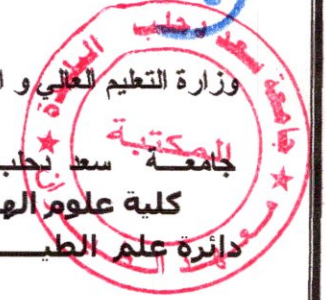 وزارة التعليم العالي و ا
جامعـــة سعد دحلب
كلية علوم اله
دائرة علم الطيـــ
جامعة سعد دحلب البليدة
المكتبة